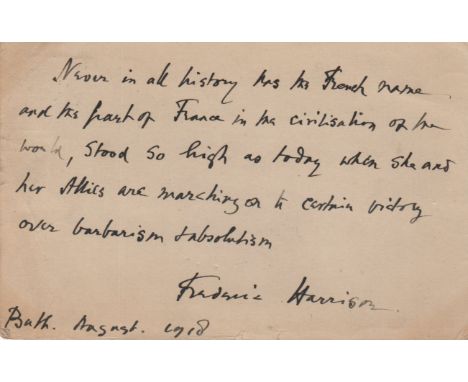 Never in all history has the French name
and the part of France in the civilisation of the
world, stood so high as today when she and
her Allies are marching on to certain victory
over barbarism & absolutism
Frederic Harrison.
Bath. August. 1918